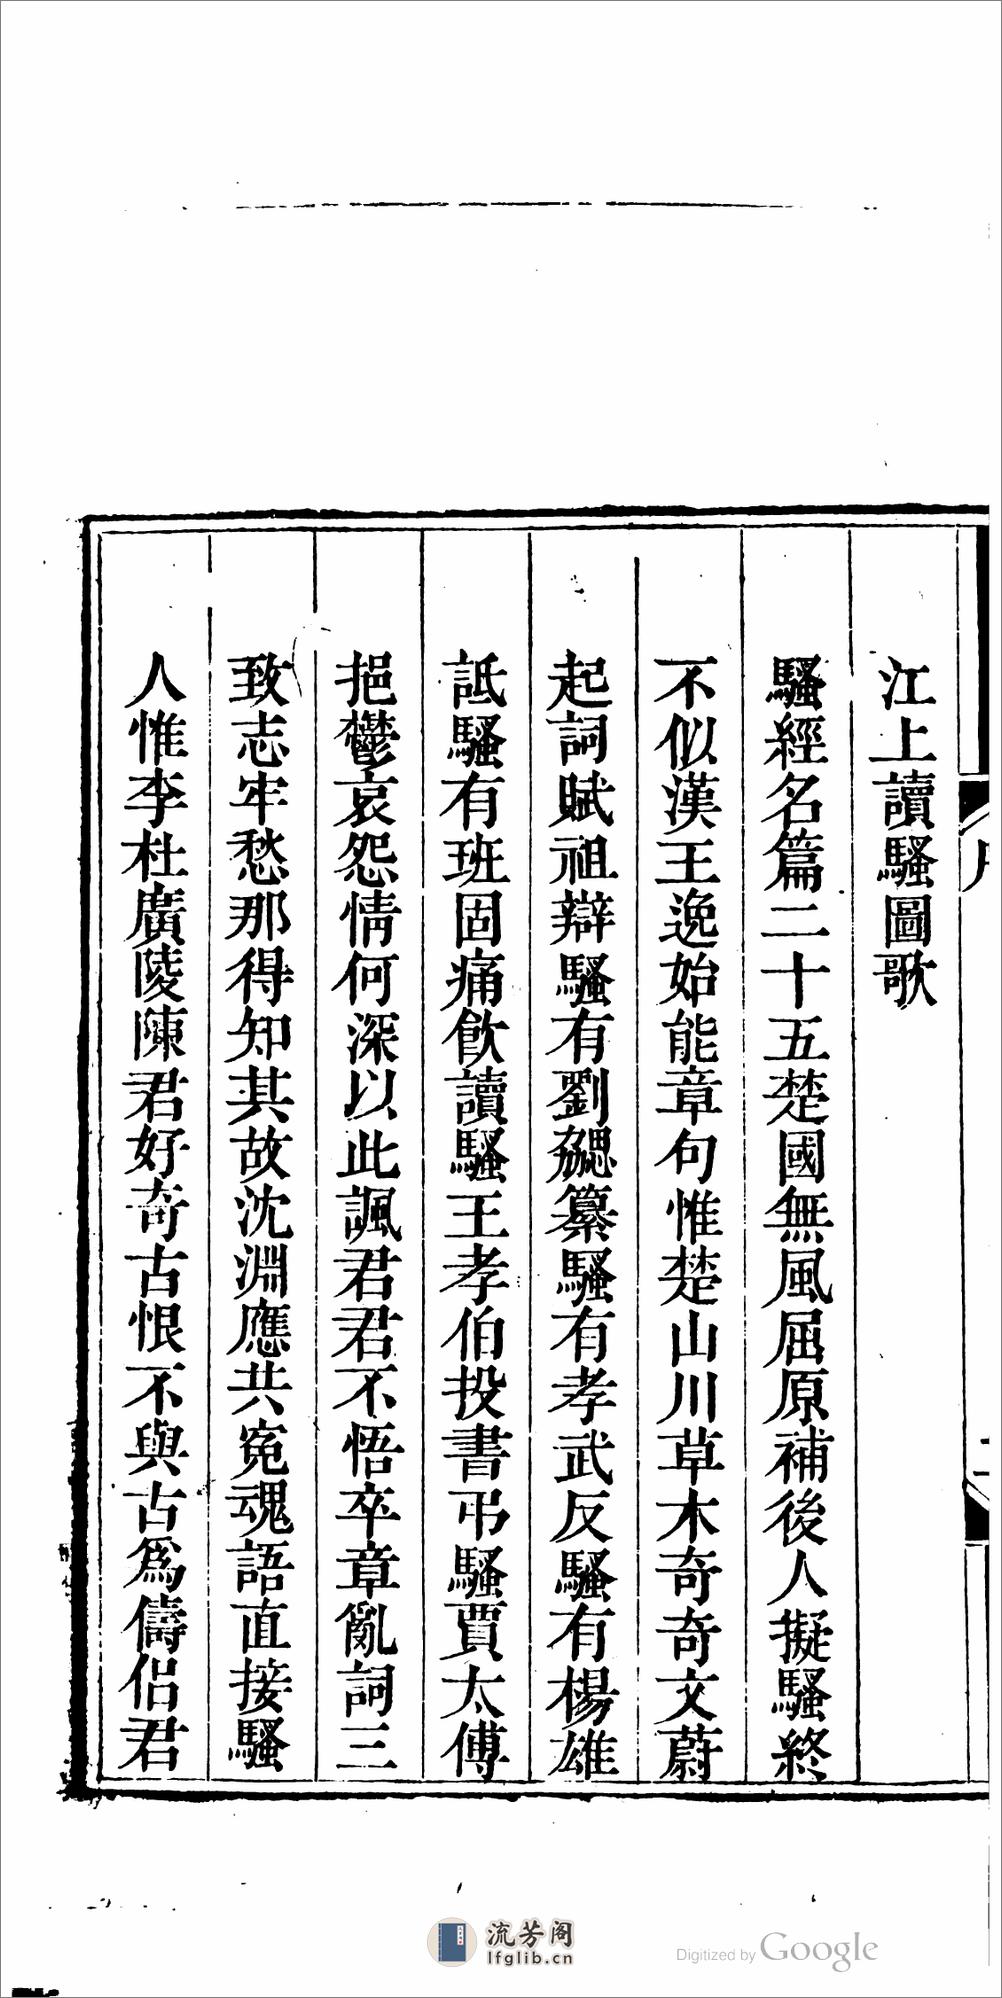 江上讀騷圖歌
騷經名篇二十五楚國無風屈原補後人擬騷終
不似漢王逸始能章句惟楚山川草木奇奇文蔚
起詞賦祖辯騷有劉勰纂騷有孝武反騷有楊雄
詆騷有班固痛飲讀騷王孝伯投書弔騷賈太傅
挹鬱哀怨情何深以此諷君君不悟卒章亂詞三
致志牢愁那得知其故沈淵應共冤魂語直接騷
人惟李杜廣陵陳君好奇古恨不與古爲儔侶君
流芳阁
lfglib.cn
Digitized by Google